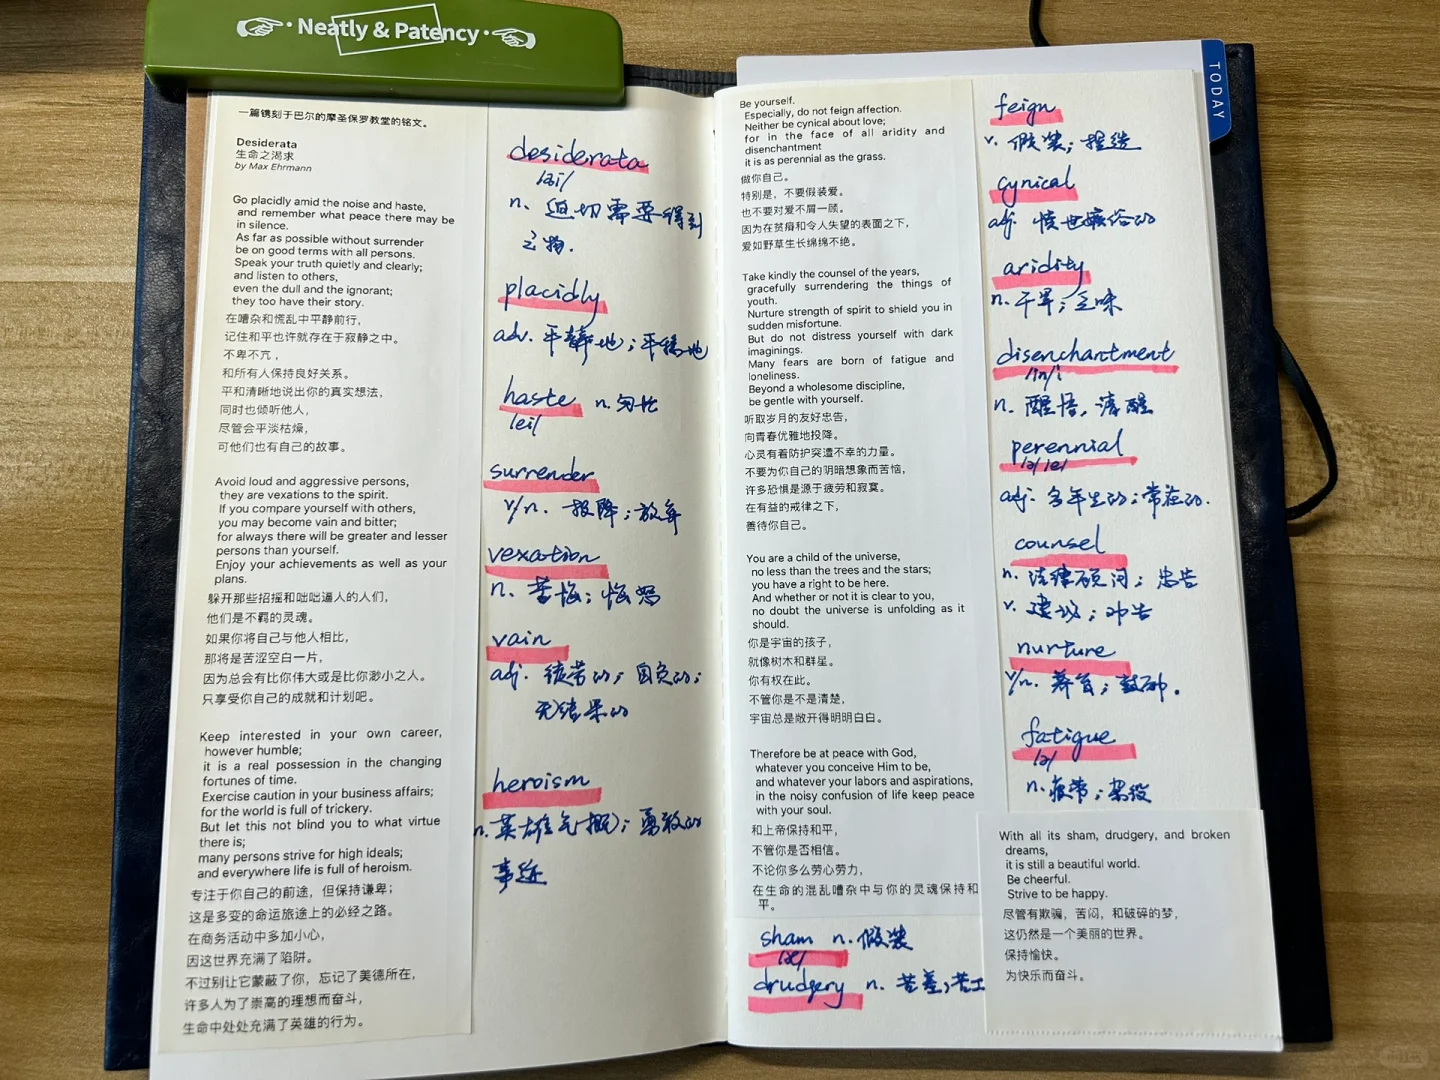 Neatly & Patency
TODAY
一篇镌刻于巴尔的摩圣保罗教堂的铭文。
Desiderata
生命之渴求
by Max Ehrmann
Go placidly amid the noise and haste,
and remember what peace there may be
in silence.
As far as possible without surrender
be on good terms with all persons.
Speak your truth quietly and clearly;
and listen to others,
even the dull and the ignorant;
they too have their story.
在嘈杂和慌乱中平静前行，
记住和平也许就存在于寂静之中。
不卑不亢，
和所有人保持良好关系。
平和清晰地说出你的真实想法，
同时也倾听他人，
尽管会平淡枯燥，
可他们也有自己的故事。
Avoid loud and aggressive persons,
they are vexations to the spirit.
If you compare yourself with others,
you may become vain and bitter;
for always there will be greater and lesser
persons than yourself.
Enjoy your achievements as well as your
plans.
躲开那些招摇和咄咄逼人的人们，
他们是不羁的灵魂。
如果你将自己与他人相比，
那将是苦涩空白一片，
因为总会有比你伟大或是比你渺小之人。
只享受你自己的成就和计划吧。
Keep interested in your own career,
however humble;
it is a real possession in the changing
fortunes of time.
Exercise caution in your business affairs;
for the world is full of trickery.
But let this not blind you to what virtue
there is;
many persons strive for high ideals;
and everywhere life is full of heroism.
专注于你自己的前途，但保持谦卑；
这是多变的命运旅途上的必经之路。
在商务活动中多加小心，
因这世界充满了陷阱。
不过别让它蒙蔽了你，忘记了美德所在，
许多人为了崇高的理想而奋斗，
生命中处处充满了英雄的行为。
desiderata
/ai/
n. 迫切需要得到
之物.
placidly
adv. 平静地；平稳地
haste n. 匆忙
/ei/
surrender
v/n. 投降；放弃
vexation
n. 苦恼；恼怒
vain
adj. 徒劳的；自负的；
无结果的
heroism
n. 英雄气概；勇敢的
事迹
Be yourself.
Especially, do not feign affection.
Neither be cynical about love;
for in the face of all aridity and
disenchantment
it is as perennial as the grass.
做你自己。
特别是，不要假装爱。
也不要对爱不屑一顾。
因为在贫瘠和令人失望的表面之下，
爱如野草生长绵绵不绝。
Take kindly the counsel of the years,
gracefully surrendering the things of
youth.
Nurture strength of spirit to shield you in
sudden misfortune.
But do not distress yourself with dark
imaginings.
Many fears are born of fatigue and
loneliness.
Beyond a wholesome discipline,
be gentle with yourself.
听取岁月的友好忠告，
向青春优雅地投降。
心灵有着防护突遭不幸的力量。
不要为你自己的阴暗想象而苦恼，
许多恐惧是源于疲劳和寂寞。
在有益的戒律之下，
善待你自己。
You are a child of the universe,
no less than the trees and the stars;
you have a right to be here.
And whether or not it is clear to you,
no doubt the universe is unfolding as it
should.
你是宇宙的孩子，
就像树木和群星。
你有权在此。
不管你是不是清楚，
宇宙总是敞开得明明白白。
Therefore be at peace with God,
whatever you conceive Him to be,
and whatever your labors and aspirations,
in the noisy confusion of life keep peace
with your soul.
和上帝保持和平，
不管你是否相信。
不论你多么劳心劳力，
在生命的混乱嘈杂中与你的灵魂保持和
平。
sham n. 假装
/æ/
drudgery n. 苦差；苦工
feign
v. 假装；捏造
cynical
adj. 愤世嫉俗的
aridity
n. 干旱；乏味
disenchantment
/in/
n. 醒悟，清醒
perennial
/ə/ /e/
adj. 多年生的；常在的.
counsel
n. 法律顾问；忠告
v. 建议；劝告
nurture
v/n. 养育；鼓励.
fatigue
/ə/
n. 疲劳；杂役
With all its sham, drudgery, and broken
dreams,
it is still a beautiful world.
Be cheerful.
Strive to be happy.
尽管有欺骗，苦闷，和破碎的梦，
这仍然是一个美丽的世界。
保持愉快。
为快乐而奋斗。